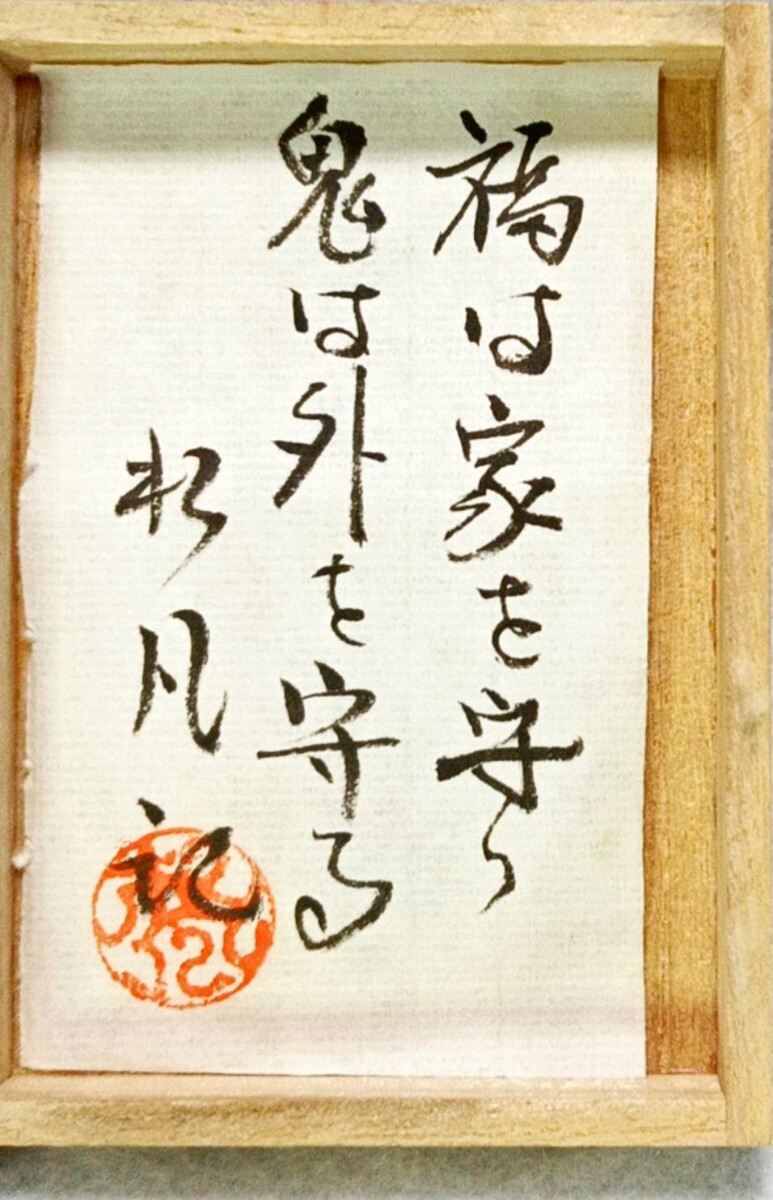 福は家を守り
鬼は外を守る
松凡記